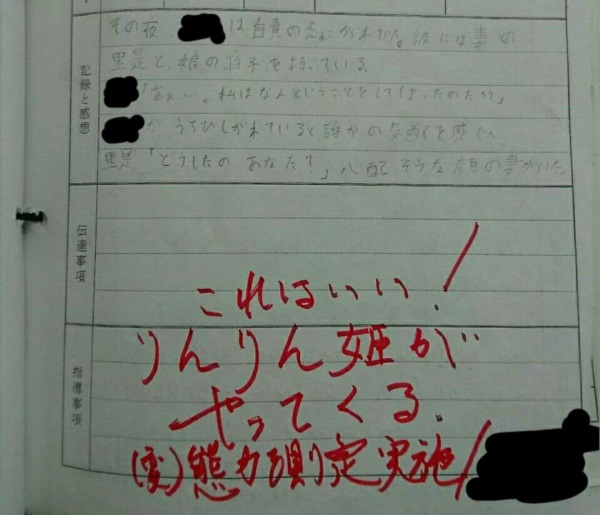 その夜、は自責の念におわれていた。彼には妻の
里是と、娘の将子を持っている。
「あぁ…。私はなんということをしてしまったのだろう」
がうちひしがれていると誰かの気配を感じ
里是「どうしたの あなた?」心配そうな顔の妻がいた。
記録と感想
伝達事項
これはいい!
りんりん姫が
やってくる。
指導事項
(変)態力測定実施